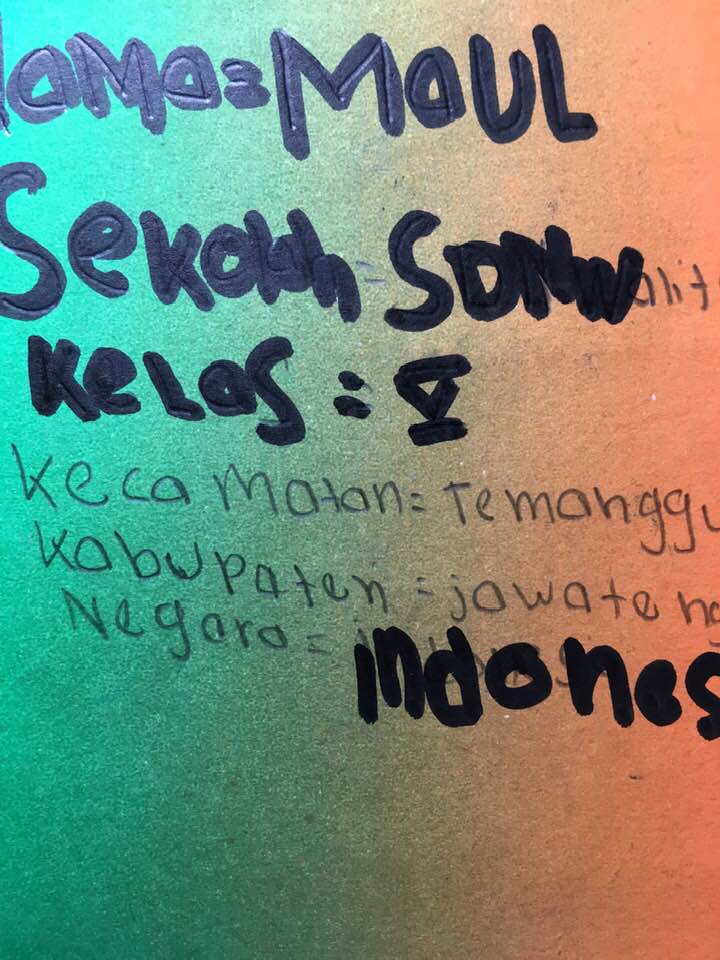 Nama=MaUL
Sekolah=SDN Walit
Kelas = V
Kecamatan=Temanggu
Kabupaten =jawateng
Negara= indones